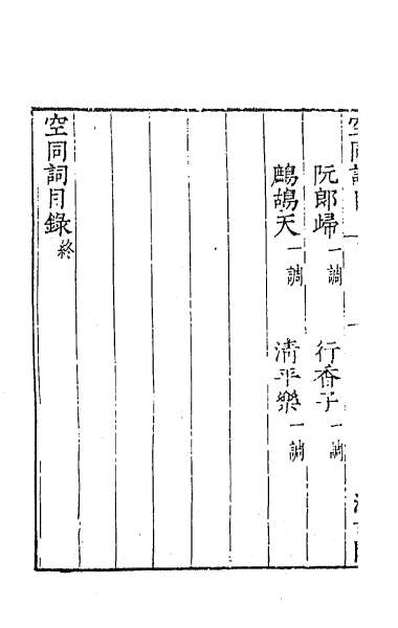 阮郎歸一調 行香子一調
鷓鴣天一調 清平樂一調
空同詞目錄終